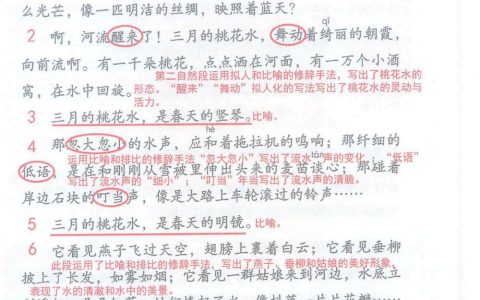 么光芒，像一匹明洁的丝绸，映照着蓝天？
qǐ
2 啊，河流醒来了！三月的桃花水，舞动着绮丽的朝霞，
向前流啊。有一千朵桃花，点点洒在河面，有一万个小酒
第二自然段运用拟人和比喻的修辞手法，写出了桃花水的
窝，在水中回旋。
形态。“醒来”“舞动”拟人化的写法写出了桃花水的灵动与
活力。
3 三月的桃花水，是春天的竖琴。比喻。
hè
4 那忽大忽小的水声，应和着拖拉机的鸣响；那纤细的
运用比喻和排比的修辞手法“忽大忽小”写出了流水声的变化；“低语”
lán
低语，是在和刚刚从雪被里伸出头来的麦苗谈心；那碰着
写出了流水声的“细小”；“叮当”年当写出了流水声的清脆。
岸边石块的叮当声，像是大路上车轮滚过的铃声……
5 三月的桃花水，是春天的明镜。比喻。
6 它看见燕子飞过天空，翅膀上裹着白云；它看见垂柳
此段运用了比喻和排比的修辞手法，写出了燕子、垂柳和姑娘的美好形象，
披上了长发，如雾如烟；它看见一群姑娘来到河边，水底立
表现了水的清澈和水中的美景。